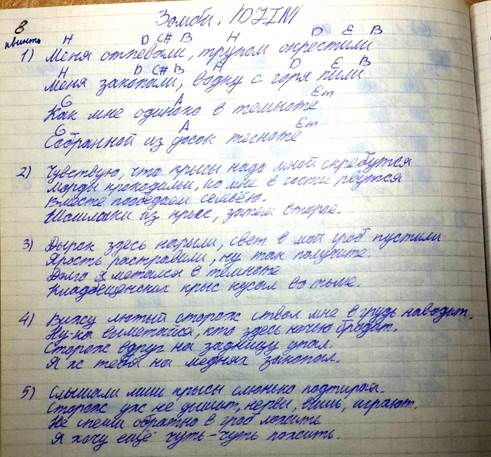 8
Зомби. ЮГIM
квинты
H D C# B H D E B
1) Меня отпевали, трупом окрестили
H D C# B H D E B
Меня закопали, водку с горя пили
G A Em
Как мне одиноко в темноте
G A Em
Собранной из досок тесноте
2) Чувствую, что крысы надо мной скребутся
Морды крокодильи, ко мне в гости рвутся
Вместе пообедаем семьёю.
Шашлыки из крыс, затем второе.
3) Дырок здесь нарыли, свет в мой гроб пустили
Ярость растравили, ну так получите.
Долго я метался в темноте
Кладбищенских крыс кусал во тьме.
4) Вижу лютый сторож ствол мне в грудь наводит.
Ну-ка выметайся, кто здесь ночью бродит.
Сторож вдруг на задницу упал.
Я ж тебя на медня закопал.
5) Слышали лиш крысы слюнко подтирая.
Сторож уж не дышит, нервы, вишь, играют.
Не спеши обратно в гроб ложить
Я хочу ещё чуть-чуть пожить.